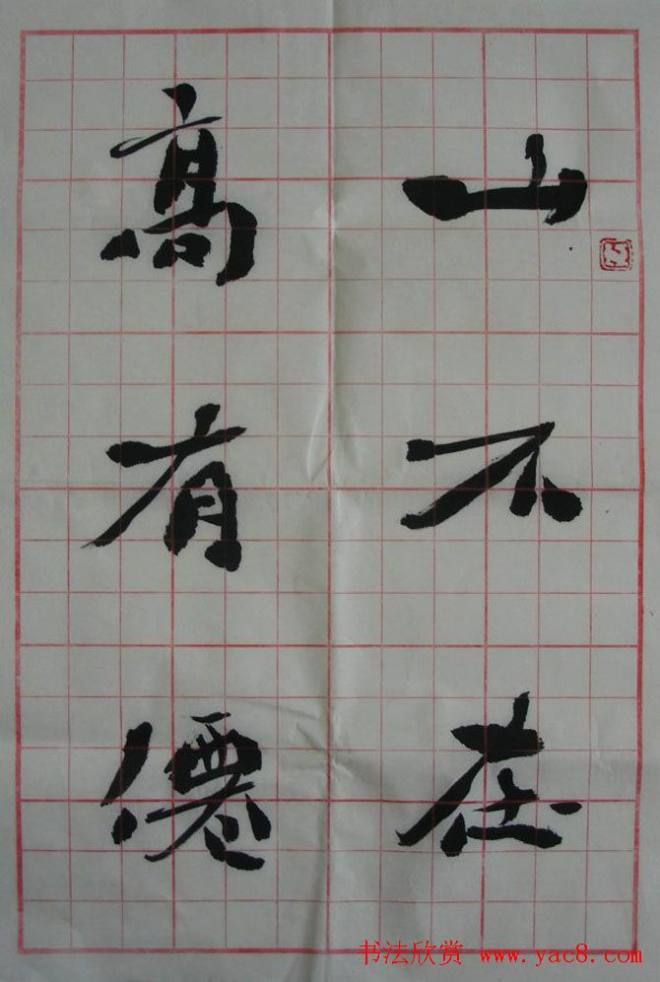 山不在
高有僊
书法欣赏 www.yac8.com